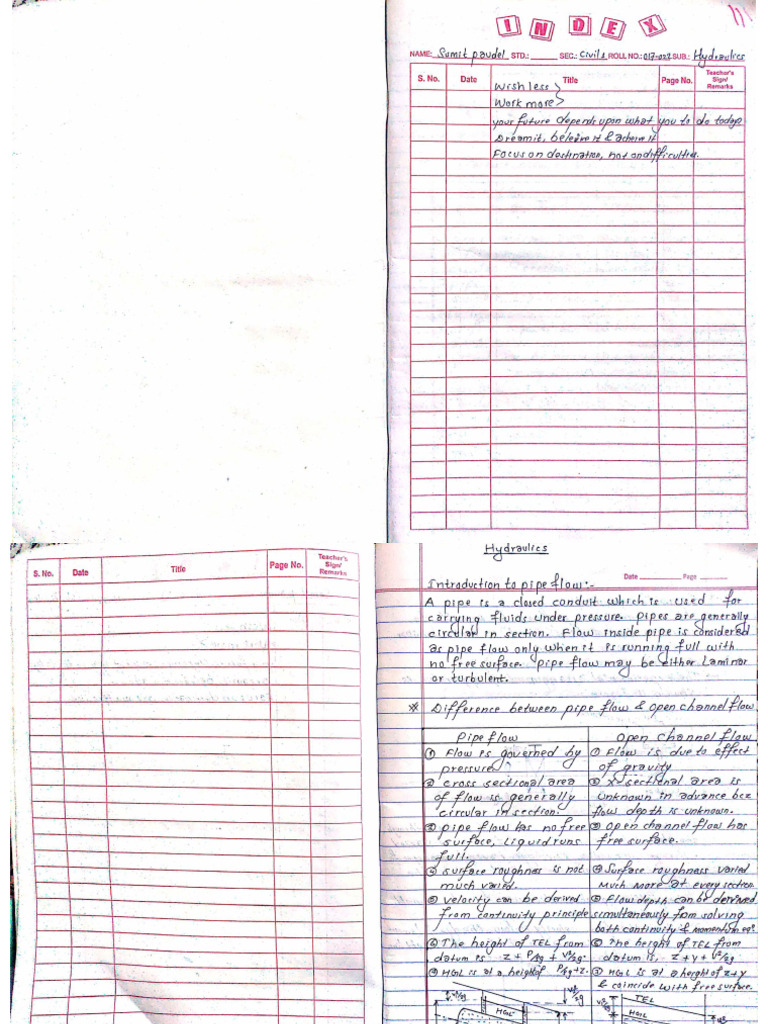 INDEX
NAME: Sumit paudel STD.: SEC.: Civil ROLL NO.: SUB.: Hydraulics
S. No. Date Title Page No. Teacher's Sign/ Remarks
Wish less
Work more
your future depends upon what you to do today
Dream it, beleive it & acheive it
Focus on destination, not on difficulties.
S. No. Date Title Page No. Teacher's Sign/ Remarks
Hydraulics
Date Page
Introduction to pipe flow:-
A pipe is a closed conduit which is used for
carrying fluids under pressure. Pipes are generally
circular in section. Flow inside pipe is considered
as pipe flow only when it is running full with
no free surface. Pipe flow may be either Laminar
or turbulent.
※ Difference between pipe flow & open channel flow
Pipe flow
① Flow is governed by
pressure.
② cross sectional area
of flow is generally
circular in section.
③ pipe flow has no free
surface, Liquid runs
full.
④ surface roughness is not
much varied.
⑤ velocity can be derived
from continuity principle
⑥ The height of TEL from
datum is z + P/ρg + v²/2g.
⑦ HGL is at a height of P/ρg+z.
open channel flow
① Flow is due to effect
of gravity
② X-sectional area is
unknown in advance bcz
flow depth is unknown.
③ open channel flow has
free surface.
④ Surface roughness varied
much more at every section.
⑤ Flow depth can be derived
simultaneously from solving
both continuity & momentum eqⁿ.
⑥ The height of TEL from
datum is, z + y + v²/2g
⑦ HGL is at a height of z+y
& coincide with free surface.
v²/2g
HGL
v²/2g
v²/2g
TEL
HGL